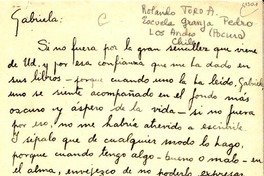 Gabriela:
C
Rolando TORO A.
Escuela Granja Pedro
Los Andes (Pocuro)
Chile
Si no fuera por la gran sencillez que viene
de Ud, y por esa confianza que me ha dado en
sus libros - porque cuando uno la ha leído, Gabriela
uno se siente acompañado en el fondo más
oscuro y áspero de la vida - si no fuera
por eso, no me habría atrevido a escribirle.
I sépalo que de cualquier modo lo hago,
porque cuando tengo algo - bueno o malo - en
el alma, envejezco de no poderlo expresar